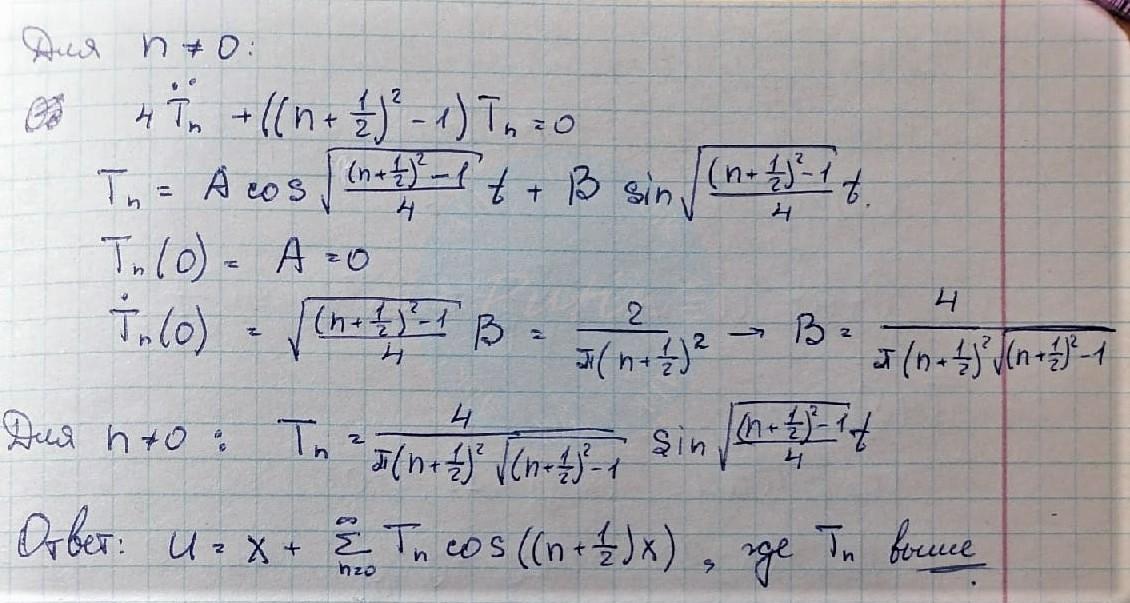 Для n ≠ 0:
4 T̈ₙ + ((n + 1/2)² - 1) Tₙ = 0
Tₙ = A cos √(((n+1/2)² - 1)/4) t + B sin √(((n+1/2)² - 1)/4) t.
Tₙ(0) = A = 0
Ṫₙ(0) = √(((n+1/2)² - 1)/4) B = 2/(π(n+1/2)²) → B = 4/(π(n+1/2)² √((n+1/2)² - 1))
Для n ≠ 0 : Tₙ = 4/(π(n+1/2)² √((n+1/2)² - 1)) sin √(((n+1/2)² - 1)/4) t
Ответ: u = x + ∑ₙ₌₀^∞ Tₙ cos((n + 1/2)x), где Tₙ выше.